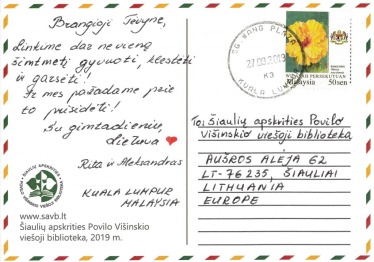 Brangioji Tėvyne,
Linkime dar ne vieną
šimtmetį gyvuoti, klestėti
ir garsėti!
O mes pažadame prie
to prisidėti!
Su gimtadieniu,
Lietuva
Rita ir Aleksandras
KUALA LUMPUR
MALAYSIA
www.savb.lt
Šiaulių apskrities Povilo Višinskio
viešoji biblioteka, 2019 m.
PLAZA
KUALA LUMPUR
WILAYAH PERSEKUTUAN
Malaysia 50sen
To: Šiaulių apskrities Povilo
Višinskio viešoji biblioteka
AUŠROS ALĖJA 62
LT-76235, ŠIAULIAI
LITHUANIA
EUROPE